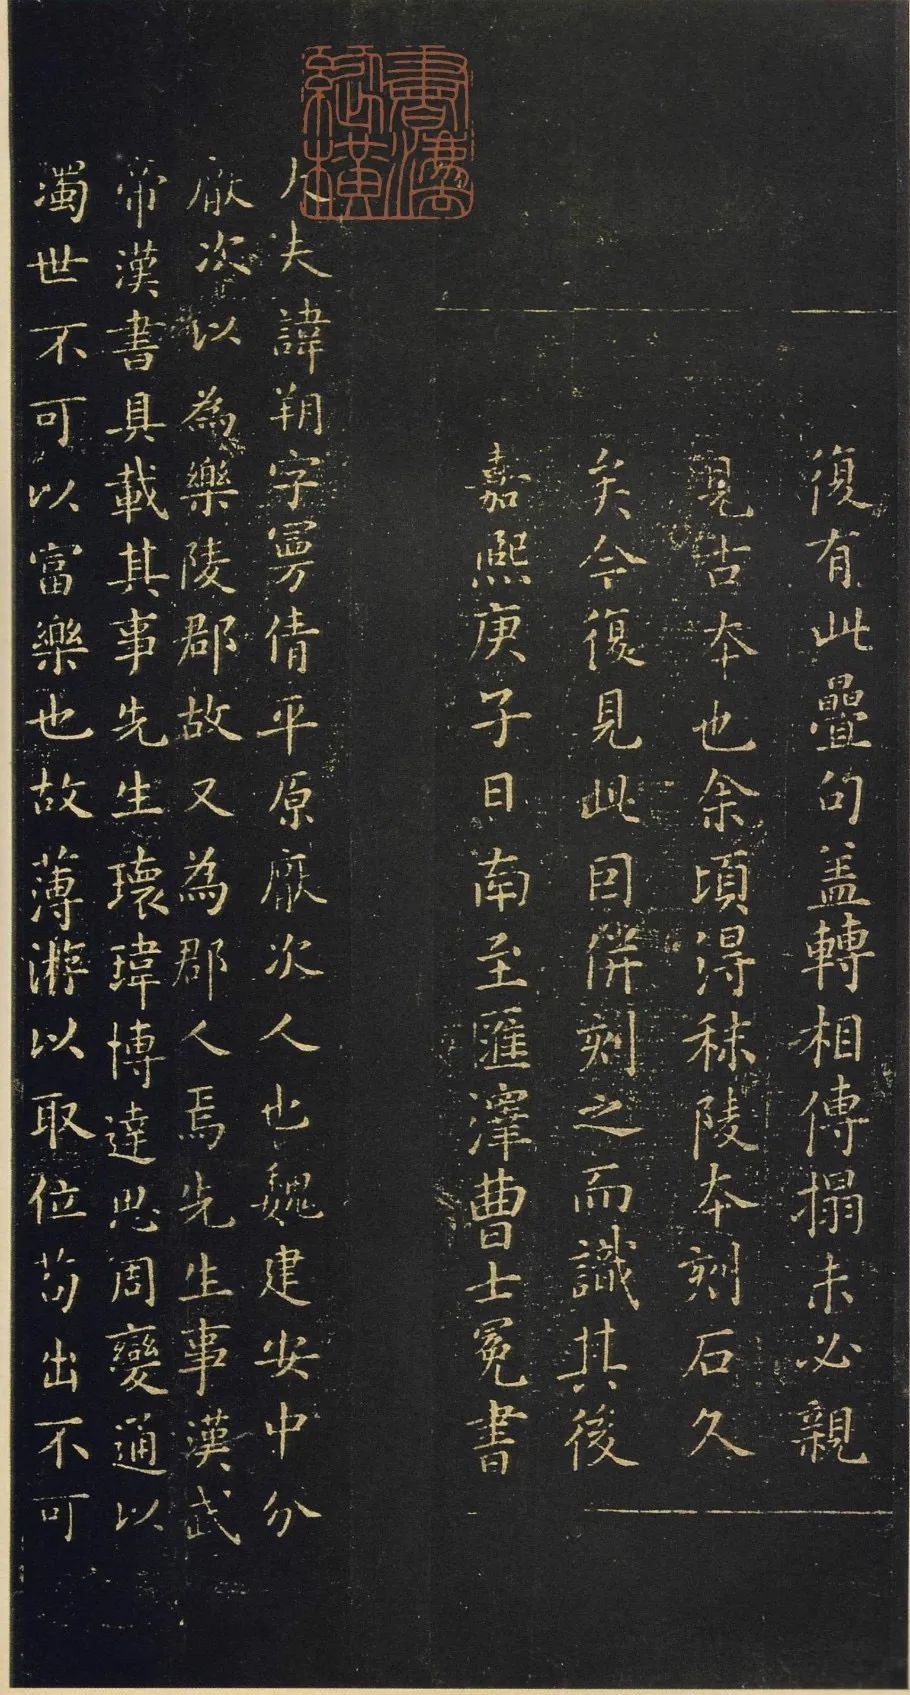 書灋縱橫
復有此疊句盖轉相傳搨未必親
見古本也余頃淂秣陵本刻石久
矣今復見此因併刻之而識其後
嘉熙庚子日南至匯澤曹士冕書
大夫諱朔字曼倩平原厭次人也魏建安中分
厭次以為樂陵郡故又為郡人焉先生事漢武
帝漢書具載其事先生瓌瑋博達思周變通以
濁世不可以富樂也故薄游以取位苟出不可